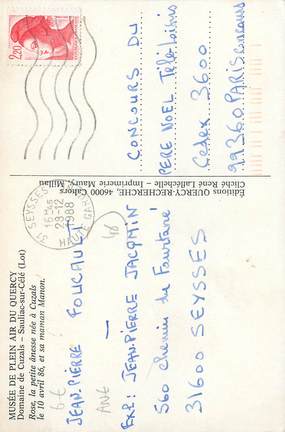 MUSÉE DE PLEIN AIR DU QUERCY
Domaine de Cuzals – Sauliac-sur-Célé (Lot)
Rose, la petite ânesse née à Cuzals
le 10 avril 86, et sa maman Manon.
6-E
JEAN-PIERRE FOUCAULT
ANE
(46)
EXP: JEAN-PIERRE JACQMIN
560 chemin du
31600 SEYSSES
Éditions QUERCY-RECHERCHE, 46000 Cahors
Cliché René Lallechelle – Imprimerie Maury, Millau
31 SEYSSES
16H45
28-12
1988
2,20
CONCOURS DU
PERE NOEL Télé-Loisirs
Cedex 3600
99360 PARIS concours